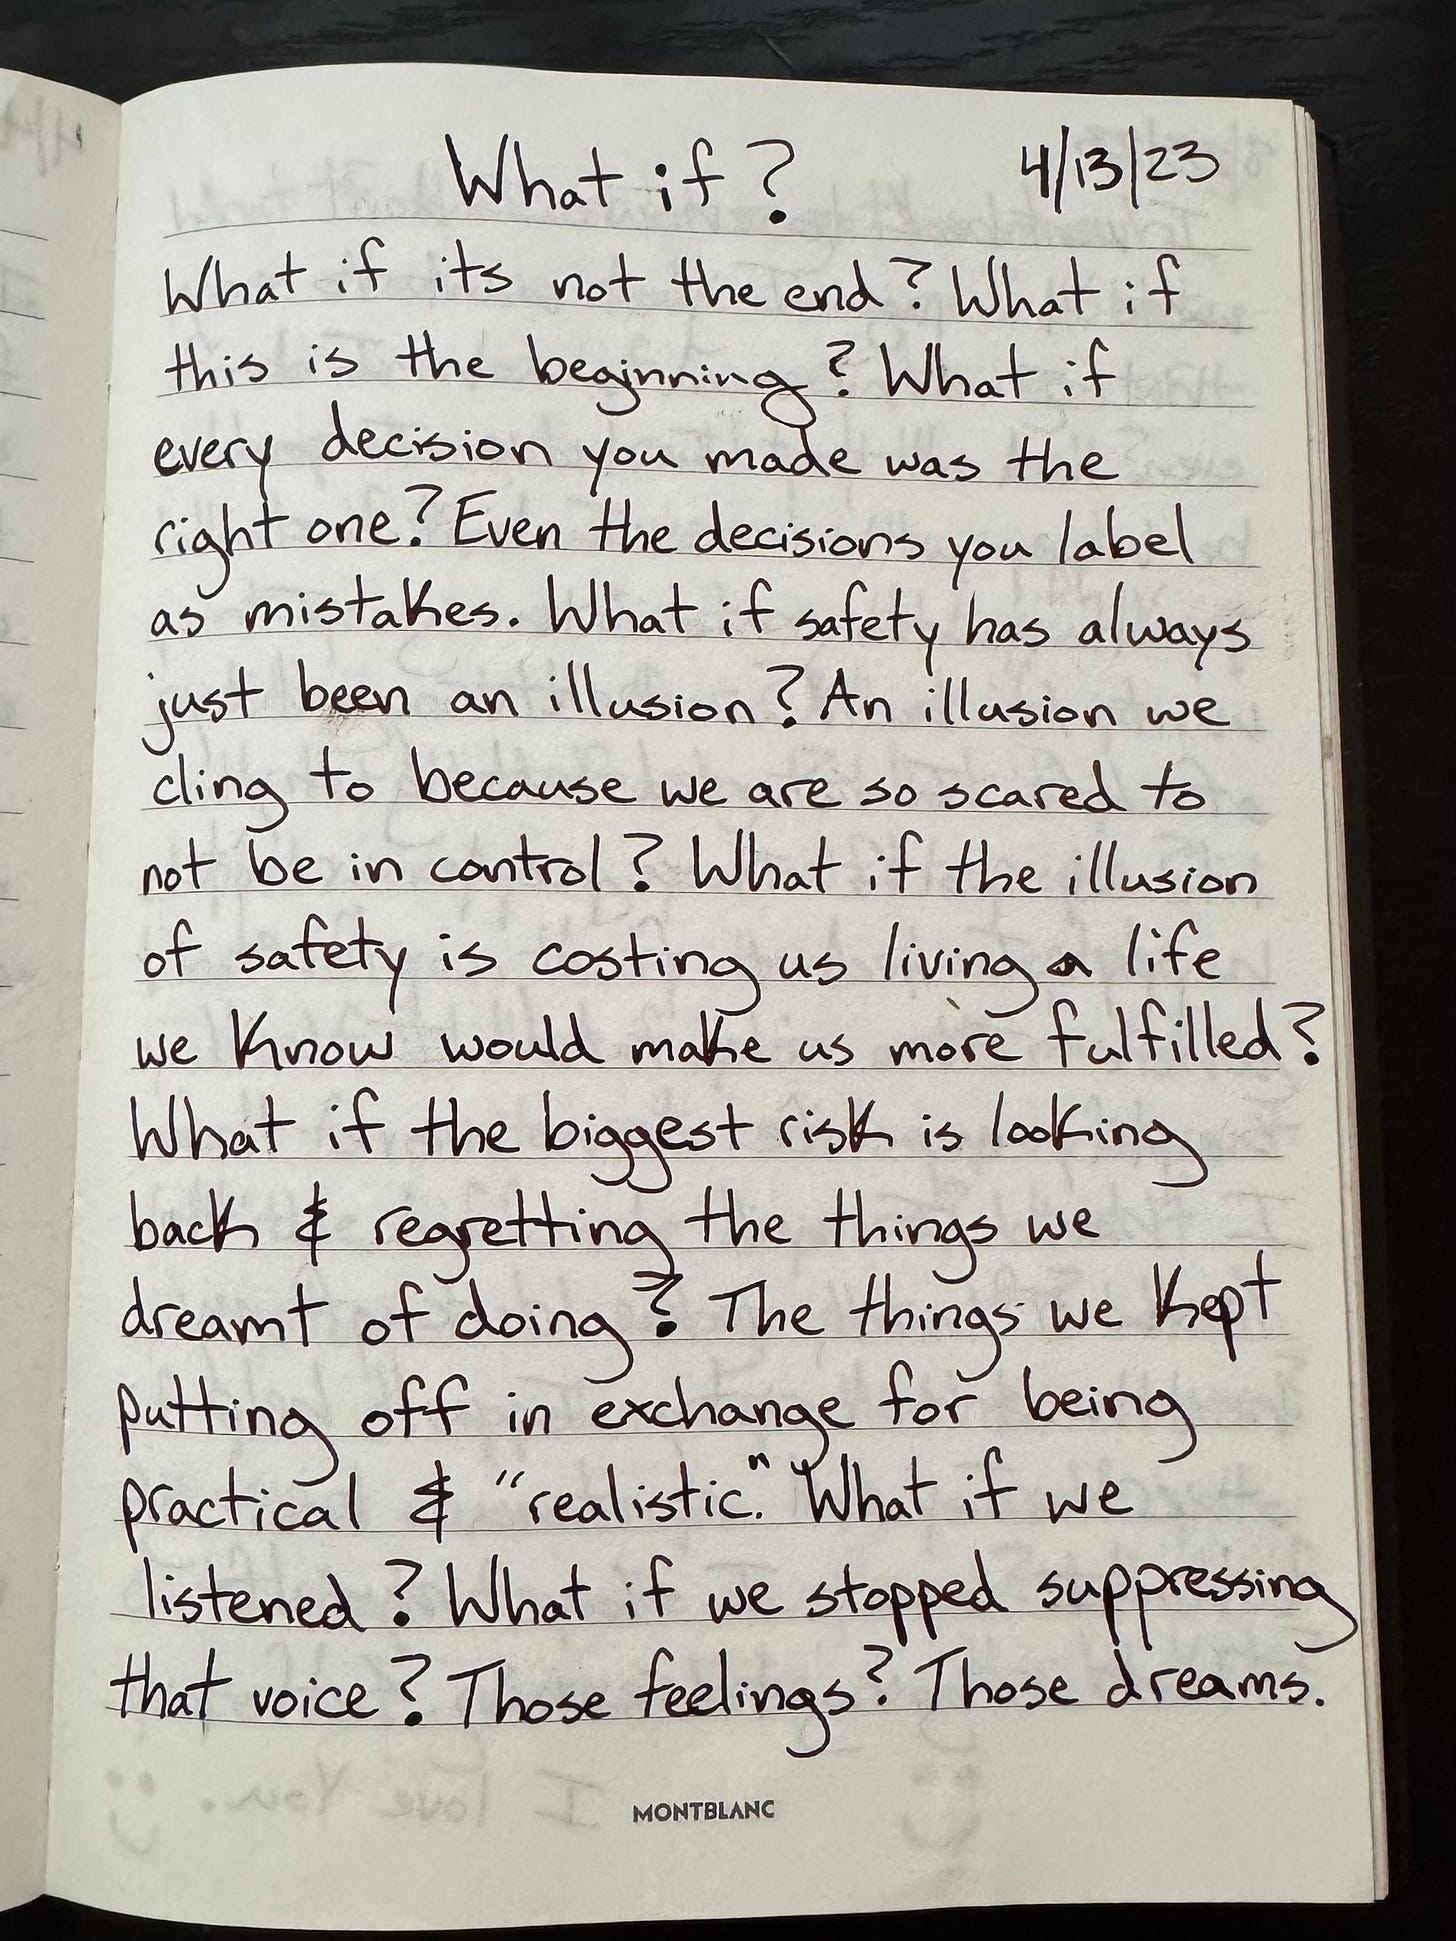 What if? 4/13/23
What if its not the end? What if
this is the beginning? What if
every decision you made was the
right one? Even the decisions you label
as mistakes. What if safety has always
just been an illusion? An illusion we
cling to because we are so scared to
not be in control? What if the illusion
of safety is costing us living a life
we know would make us more fulfilled?
What if the biggest risk is looking
back & regretting the things we
dreamt of doing? The things we kept
putting off in exchange for being
practical & "realistic." What if we
listened? What if we stopped suppressing
that voice? Those feelings? Those dreams.
I love You.
MONTBLANC